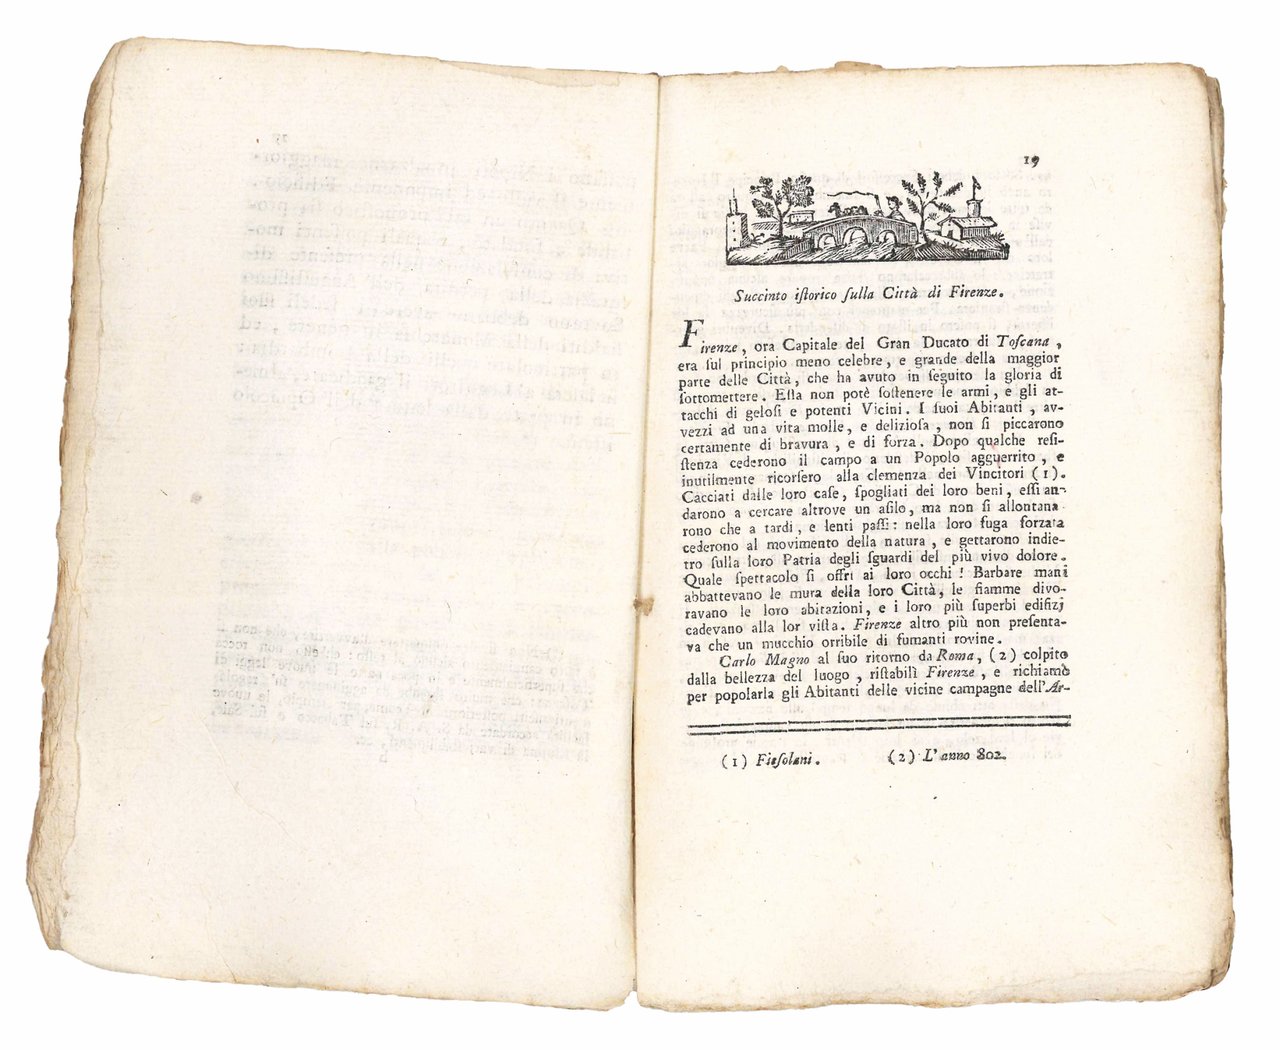 19
Succinto iſtorico ſulla Città di Firenze.
Firenze, ora Capitale del Gran Ducato di Toſcana,
era ſul principio meno celebre, e grande della maggior
parte delle Città, che ha avuto in ſeguito la gloria di
ſottomettere. Eſſa non potè ſoſtenere le armi, e gli at-
tacchi di geloſi e potenti Vicini. I ſuoi Abitanti, av-
vezzi ad una vita molle, e delizioſa, non ſi piccarono
certamente di bravura, e di forza. Dopo qualche reſi-
ſtenza cederono il campo a un Popolo agguerrito, e
inutilmente ricorſero alla clemenza dei Vincitori (1).
Cacciati dalle loro caſe, ſpogliati dei loro beni, eſſi an-
darono a cercare altrove un aſilo, ma non ſi allontana
rono che a tardi, e lenti paſſi: nella loro fuga forzata
cederono al movimento della natura, e gettarono indie-
tro ſulla loro Patria degli ſguardi del più vivo dolore.
Quale ſpettacolo ſi offrì ai loro occhi! Barbare mani
abbattevano le mura della loro Città, le fiamme divo-
ravano le loro abitazioni, e i loro più ſuperbi edifizj
cadevano alla lor viſta. Firenze altro più non preſenta-
va che un mucchio orribile di fumanti rovine.
Carlo Magno al ſuo ritorno da Roma, (2) colpito
dalla bellezza del luogo, riſtabilì Firenze, e richiamò
per popolarla gli Abitanti delle vicine campagne dell'Ar-
(1) Fieſolani. (2) L'anno 802.